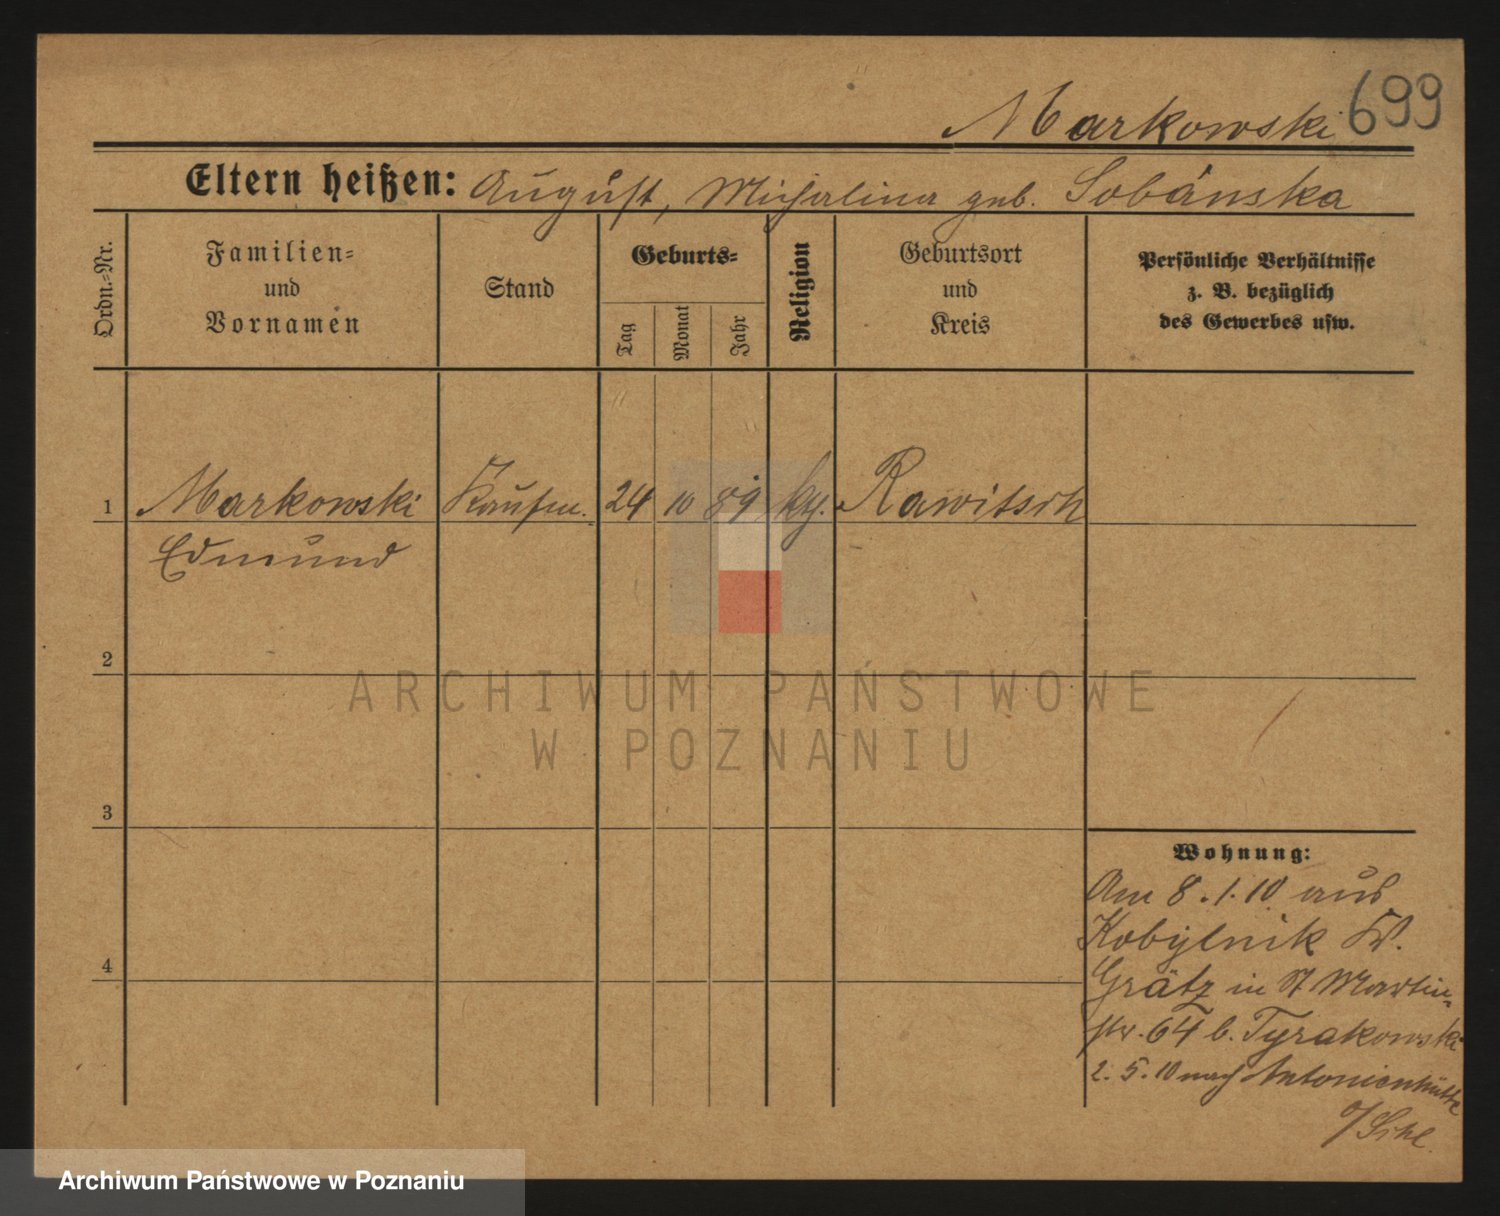 Markowski 699
Eltern heißen: August, Michalina geb. Sobánska
Ordn.-Nr.
Familien- und Vornamen
Stand
Geburts-
Tag
Monat
Jahr
Religion
Geburtsort und Kreis
Persönliche Verhältnisse
z. B. bezüglich
des Gewerbes usw.
1 Markowski Kaufm. 24 10 89 kth. Rawitsch
Edmund
2
3
4
Wohnung:
Am 8.1.10 aus
Kobylnik
Grätz in St Martin-
str. 64 b. Tyrakowski
2.5.10 nach Antonienhütte
ARCHIWUM PAŃSTWOWE
W POZNANIU
Archiwum Państwowe w Poznaniu